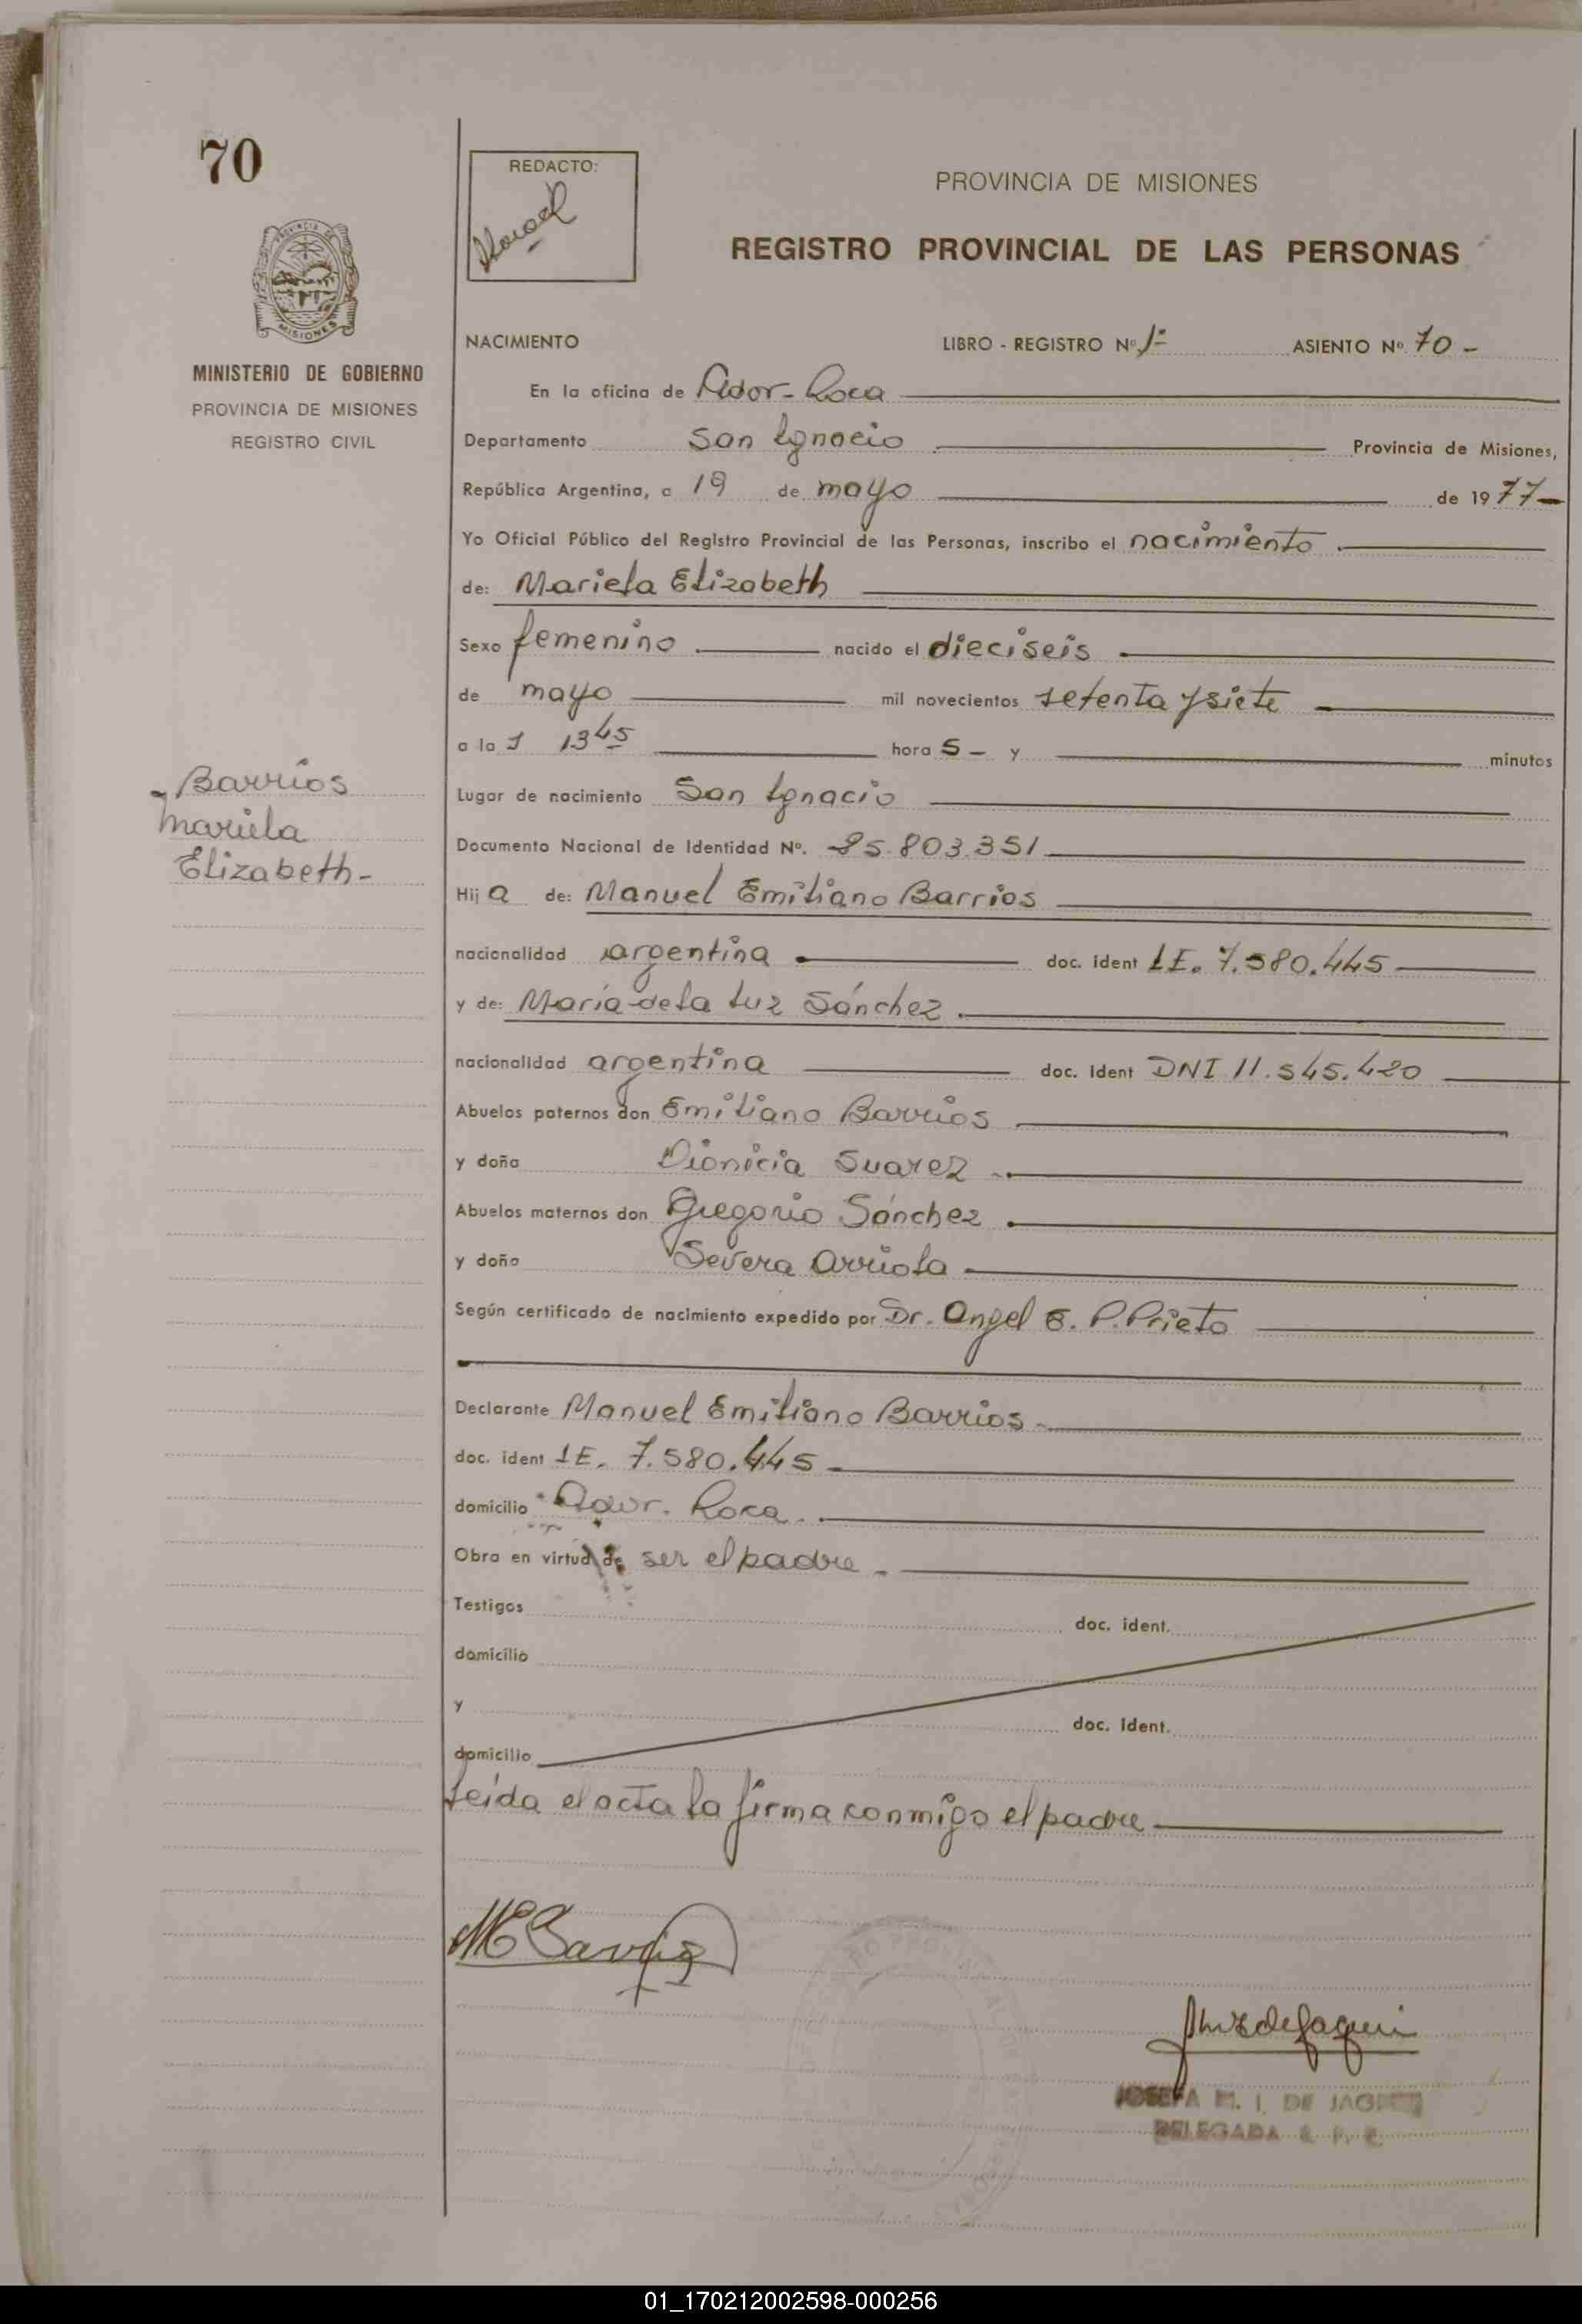 70
PROVINCIA DE MISIONES
MINISTERIO DE GOBIERNO
PROVINCIA DE MISIONES
REGISTRO CIVIL
Barrios
Mariela
Elizabeth-
REDACTO:
PROVINCIA DE MISIONES
REGISTRO PROVINCIAL DE LAS PERSONAS
NACIMIENTO LIBRO - REGISTRO Nº 1- ASIENTO Nº. 70 -
En la oficina de Gdor- Roca
Departamento San Ignacio Provincia de Misiones,
República Argentina, a 19 de mayo de 1977-
Yo Oficial Público del Registro Provincial de las Personas, inscribo el nacimiento
de: Mariela Elizabeth
Sexo femenino nacido el dieciseis
de mayo mil novecientos setenta y siete
a la s 13 45 hora s - y minutos
Lugar de nacimiento San Ignacio
Documento Nacional de Identidad Nº. 25.803.351
Hij a de: Manuel Emiliano Barrios
nacionalidad argentina doc. ident LE. 7.580.445
y de: María de la Luz Sánchez
nacionalidad argentina doc. ident DNI 11.545.420
Abuelos paternos don Emiliano Barrios
y doña Dionicia Suarez
Abuelos maternos don Gregorio Sánchez
y doña Severa Arriola
Según certificado de nacimiento expedido por Dr. Angel E. P. Prieto
Declarante Manuel Emiliano Barrios
doc. ident LE. 7.580.445
domicilio Gdor. Roca
Obra en virtud de ser el padre
Testigos doc. ident.
domicilio
y doc. ident.
domicilio
Leída el acta la firma conmigo el padre
MEBarrios
JOSEFA M. I. DE
DELEGADA R. P.
01_170212002598-000256